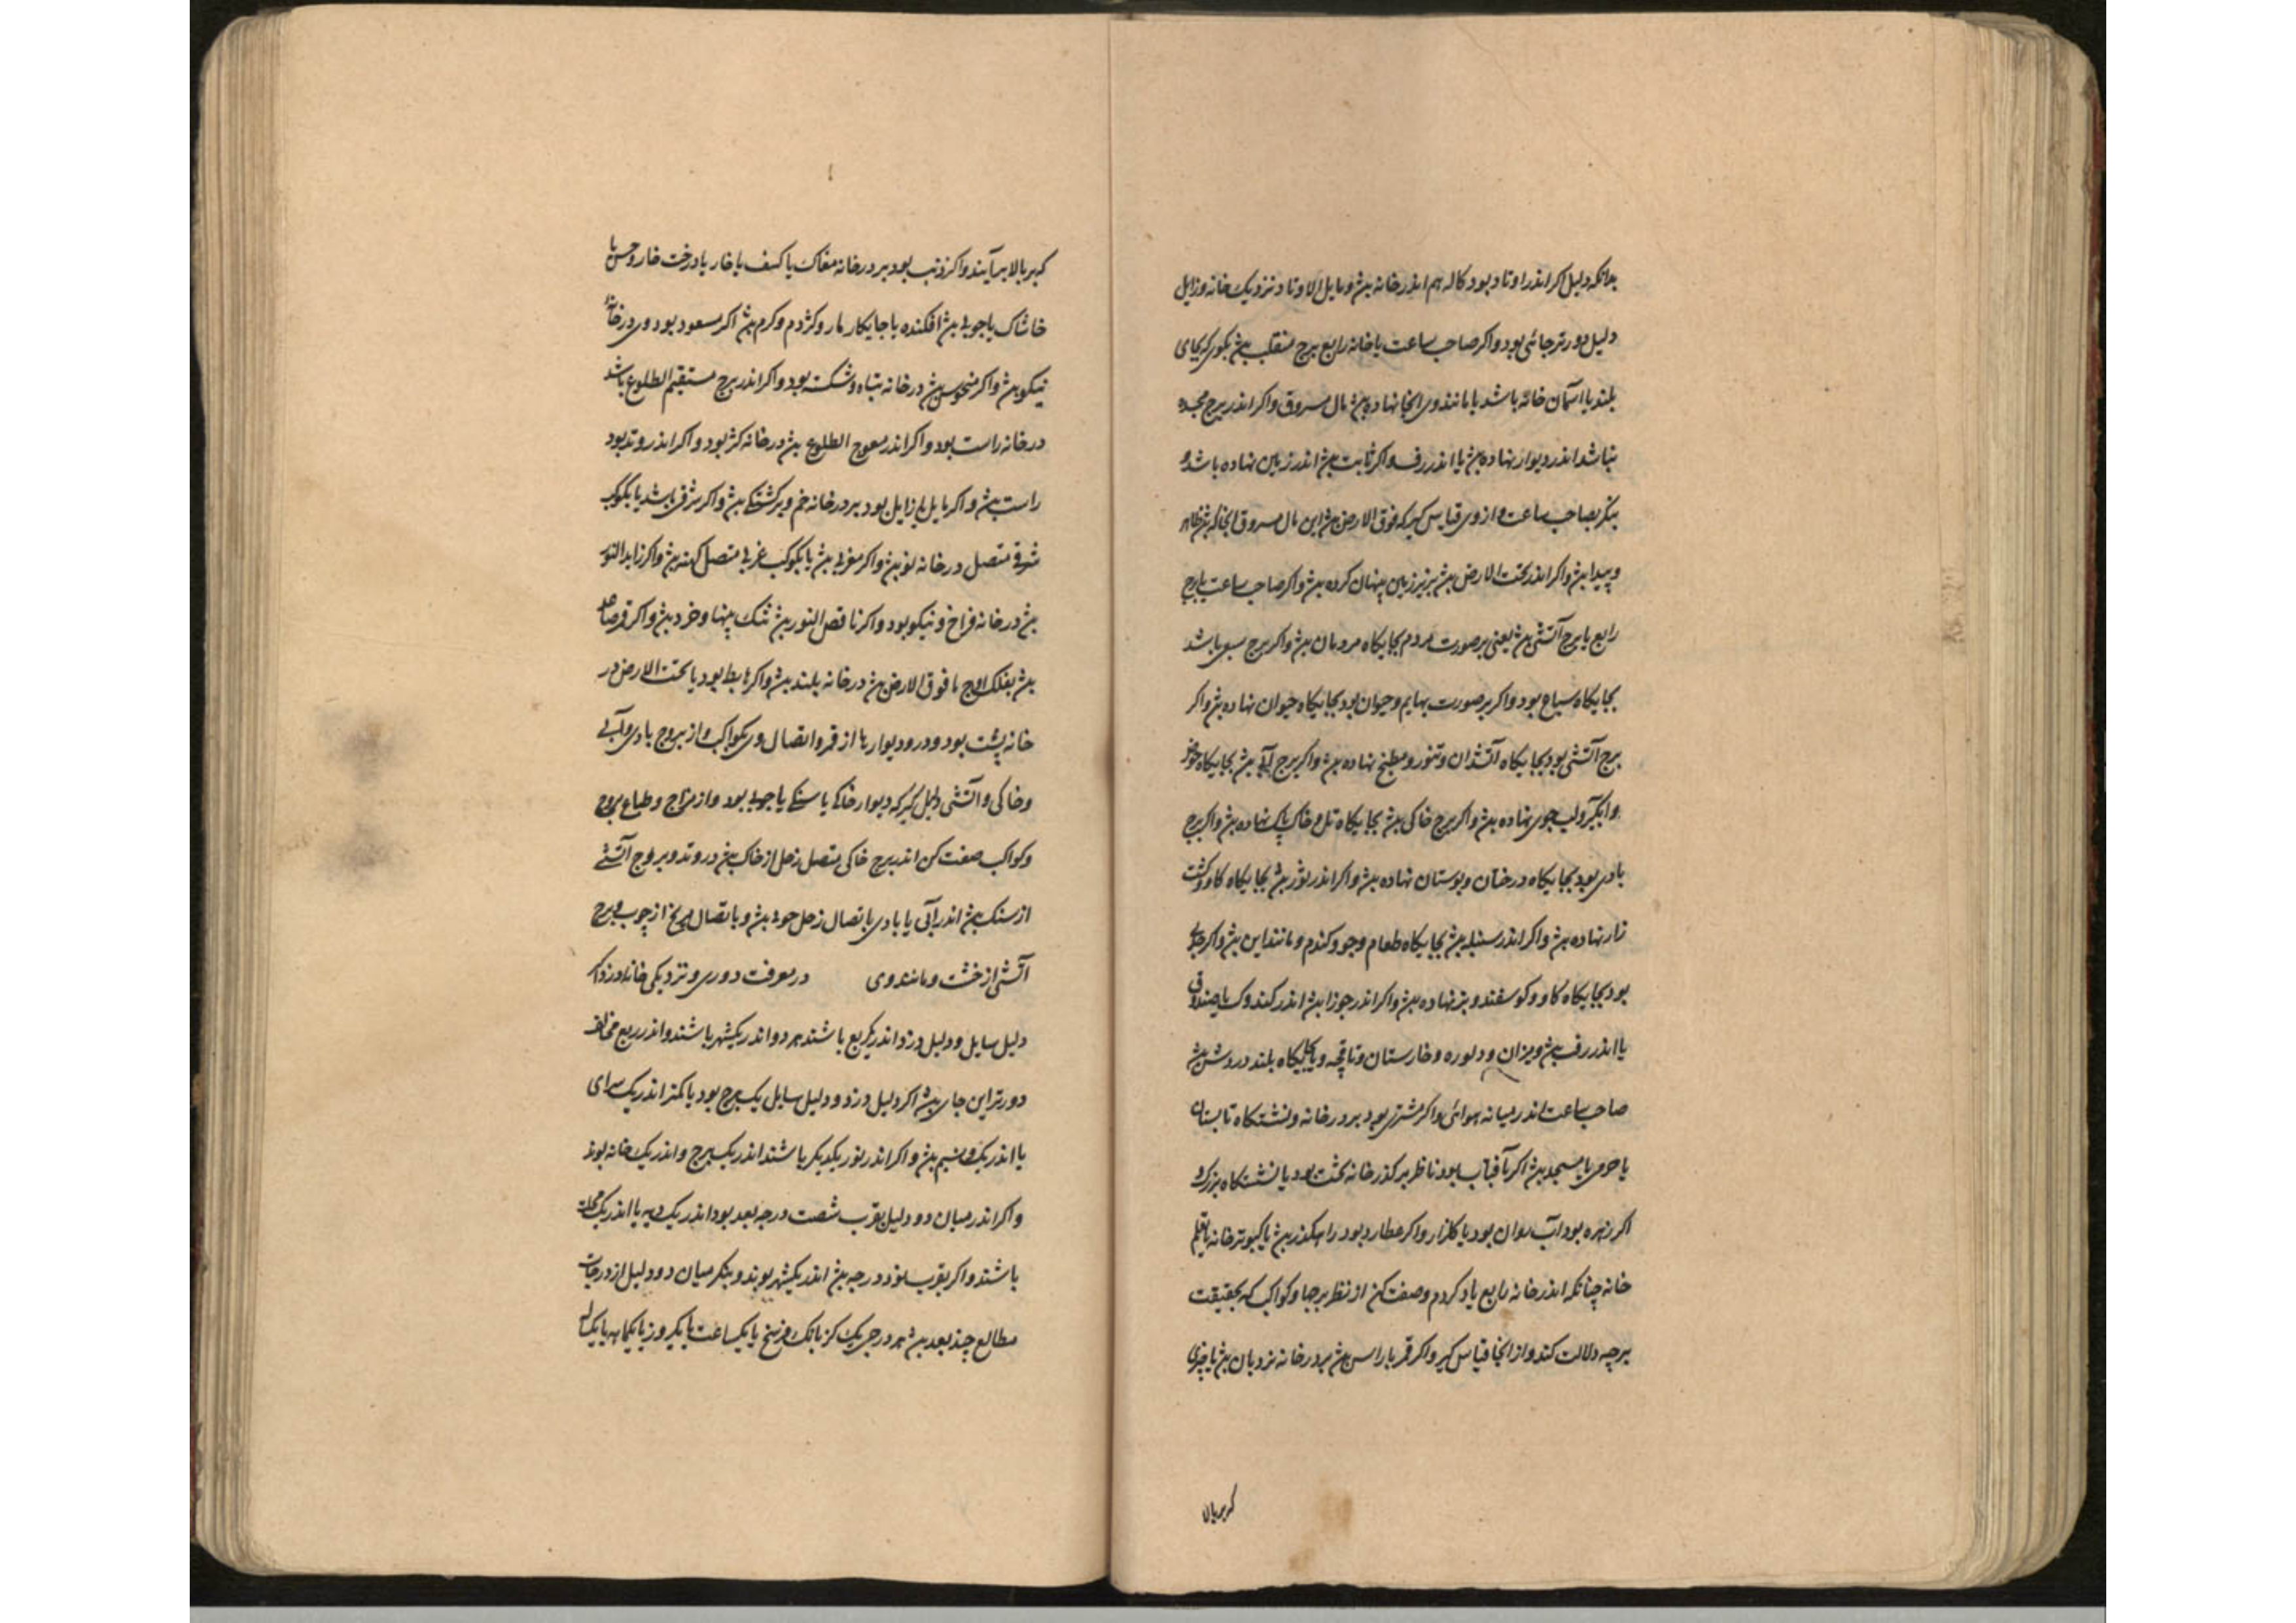 بدانکه دلیل اکر اندر اوتاد بود کاله هم اندر خانه بش و مایل الاوتاد نزدیک خانه و زایل
دلیل دورتر جائی بود و اکر صاحب ساعت یا خانه رابع برج منقلب بش بکوی که بجای
بلند یا آسمان خانه باشد یا مانند وی انجا نهاده بش مال مسروق و اکر اندر برج
نباشد اندر دیوار نهاده بش یا اندر رف و اکر ثابت بش اندر زمین نهاده باشد و
بنکر بصاحب ساعت و از وی قیاس کیر که فوق الارض بش این مال مسروق انجا که بش ظاهر
و پیدا بش و اکر اندر تحت الارض بش بزیر زمین پنهان کرده بش و اکر صاحب ساعت یا برج
رابع یا برج آتشی بش یعنی بر صورت مردم بجایکاه مردمان بش و اکر برج سبعی باشد
بجایکاه سباع بود و اکر بر صورت بهایم و حیوان بود بجایکاه حیوان نهاده بش و اکر
برج آتشی بود بجایکاه آتشدان و تنور و مطبخ نهاده بش و اکر برج آبی بش بجایکاه حوض
و آبکیر و لب جوی نهاده بش و اکر برج خاکی بش بجایکاه تل و خاک پاک نهاده بش و اکر برج
بادی بود بجایکاه درختان و بوستان نهاده بش و اکر اندر ثور بش بجایکاه کاو و کشت
زار نهاده بش و اکر اندر سنبله بش بجایکاه طعام و جو و کندم و مانند این بش و اکر جدی
بود بجایکاه کاو و کوسفند و بز نهاده بش و اکر اندر جوزا بش اندر کندوک یا صندوقی
یا اندر رف بش و میزان و دلو ره و خارستان و تاقچه و یا جایکاه بلند در روشن بش
صاحب ساعت اندر میانه هوائی و اکر مشتری بود بر در خانه و نشستکاه تابستان
یا حرمی یا مسجد بش اکر آفتاب بود ناظر بر کذر خانه تخت بود یا نشستکاه بزرک و
اکر زهره بود آب روان بود یا کلزار و اکر عطارد بود راهکذر بش یا کبوتر خانه یا قلم
خانه چنانکه اندر خانه رابع یاد کردم و صفت کن از نظر برجها و کواکب که بحقیقت
برچه دلالت کند و از انجا قیاس کیر و اکر قمر با راس بش بر در خانه نردبان بش یا چیزی
که بر بالا
که بر بالا برآیند و اکر ذنب بود بر در خانه مغاک یا کنیف یا خار یا درخت خار و خس یا
خاشاک یا جوبی بش افکنده یا جایکار مار و کژدم و کرم بش اکر مسعود بود وی در خانه
نیکو بش و اکر منحوس بش در خانه تباه و شکسته بود و اکر اندر برج مستقیم الطلوع باشد
در خانه راست بود و اکر اندر معوج الطلوع بش در خانه کژ بود و اکر اندر وتد بود
راست بش و اکر مایل یا زایل بود بر در خانه خم و برکشتکی بش و اکر شرقی باشد یا بکوکب
شرقی متصل در خانه نو بش و اکر مغربی بش یا بکوکب غربی متصل کهنه بش و اکر زاید النور
بش در خانه فراخ و نیکو بود و اکر ناقص النور بش تنک پهنا و خرد بش و اکر قمر صاعد
بش بفلک اوج یا فوق الارض بش در خانه بلند بش و اکر هابط بود یا تحت الارض در
خانه پست بود و در و دیوارها از قمر و اتصال وی بکواکب و از بروج بادی و آبی
و خاکی و آتشی دلیل کیر که دیوار خاکی یا سنکی یا چوبی بود و از مزاج و طباع بروج
و کواکب صفت کن اندر برج خاکی متصل زحل از خاک بش در وتد و بروج آتشی
از سنک بش اندر آبی یا بادی باتصال زحل چوبی بش و باتصال مریخ از چوب و برج
آتشی از خشت و مانند وی      در معرفت دوری و نزدیکی خانه دزد اکر
دلیل سایل و دلیل دزد اندر یک ربع باشند هر دو اندر یک شهر باشند و اندر ربع مخالف
دورتر این جای بش اکر دلیل دزد و دلیل سایل یک برج بود یا کمتر اندر یک سرای
یا اندر یک نیم بش و اکر اندر نور یکدیکر باشند اندر یک برج و اندر یک خانه بوند
و اکر اندر میان دو دلیل بقرب شصت درجه بعد بود اندر یک دیه یا اندر یک محلت
باشند و اکر بقرب نود درجه بش اندر یک شهر بوند و بنکر میان دو دلیل از درجات
مطالع چند بعد بش هر درجی یک کز یا یک فرسنخ یا یک ساعت یا یک روز یا یک ماه یا یک سال